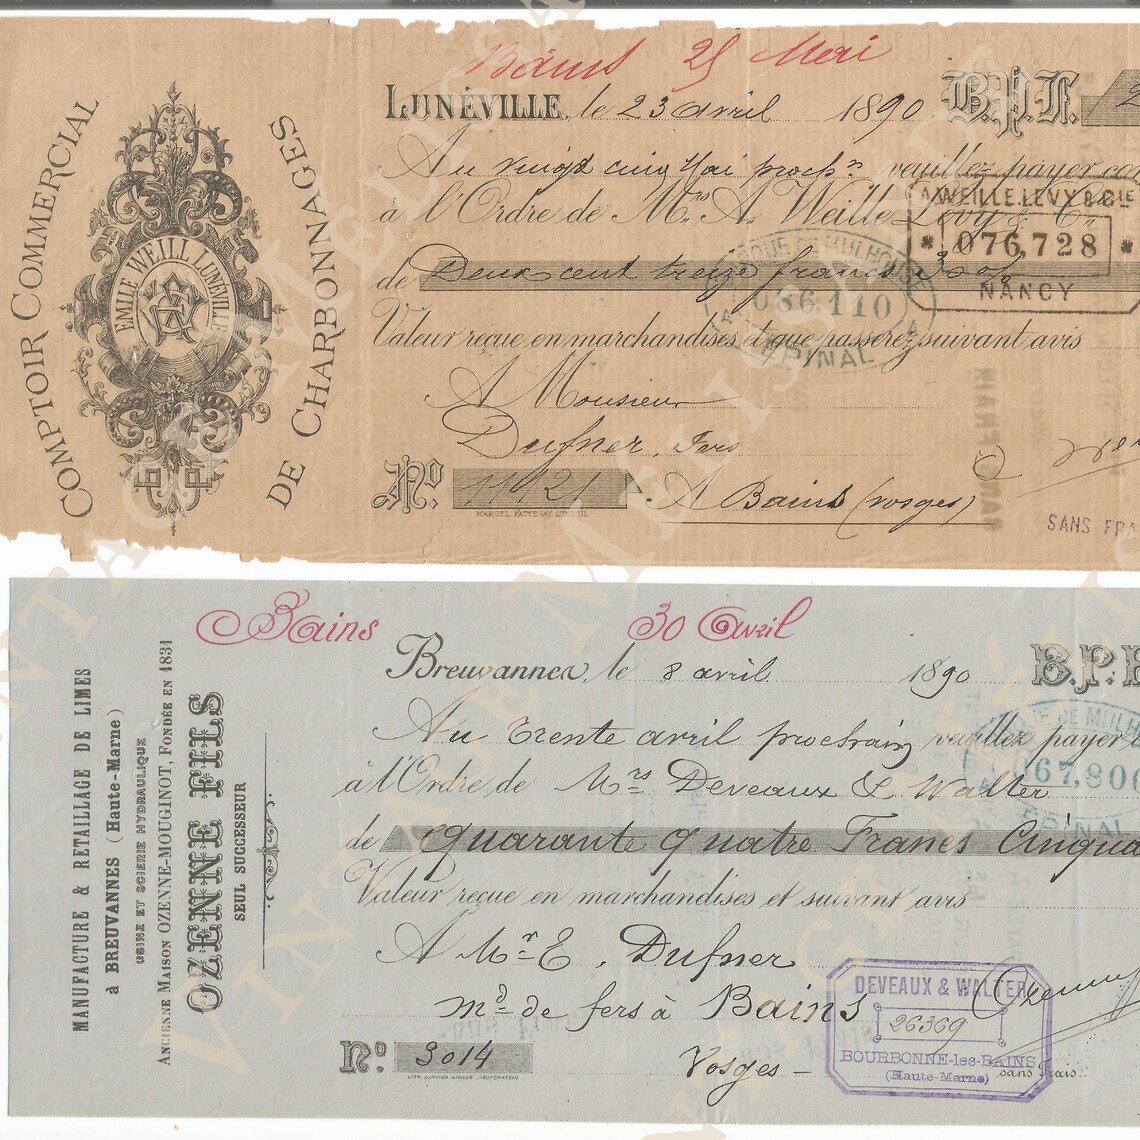 Bains 25 Mai
LUNÉVILLE, le 23 avril 1890 B.P.F. 2
Au vingt cinq Mai proch.n veuillez payer con
à l'Ordre de M.rs A. Weille Lévy & Cie
de Deux cent treize francs
Valeur reçue en marchandises et que passerez suivant avis
A Monsieur
Dufner, Fers
No 11921 A Bains (vosges)
MARCEL PATTEGAY, LUNEVIL
COMPTOIR COMMERCIAL
DE CHARBONNAGES
EMILE WEILL LUNEVILLE
A.WEILLE.LEVY & CIE
* 076,728 *
NANCY
086,110
EPINAL
SANS FRA
Bains 30 Avril
Breuvannes, le 8 avril 1890 B.P.F
Au Trente avril prochain veuillez payer
à l'Ordre de Mrs Deveaux & Walter
de quarante quatre Francs Cinqua
Valeur reçue en marchandises et suivant avis
A Mr E. Dufner
md de fers à Bains
No 3014 Vosges -
sans frais
MANUFACTURE & RETAILLAGE DE LIMES
à BREUVANNES (Haute-Marne)
USINE ET SCIERIE HYDRAULIQUE
ANCIENNE MAISON OZENNE-MOUGINOT, FONDÉE EN 1831
OZENNE FILS
SEUL SUCCESSEUR
UE DE MULHO
067,806
EPINAL
DEVEAUX & WALTER
26369
BOURBONNE-les-BAINS
(Haute-Marne)